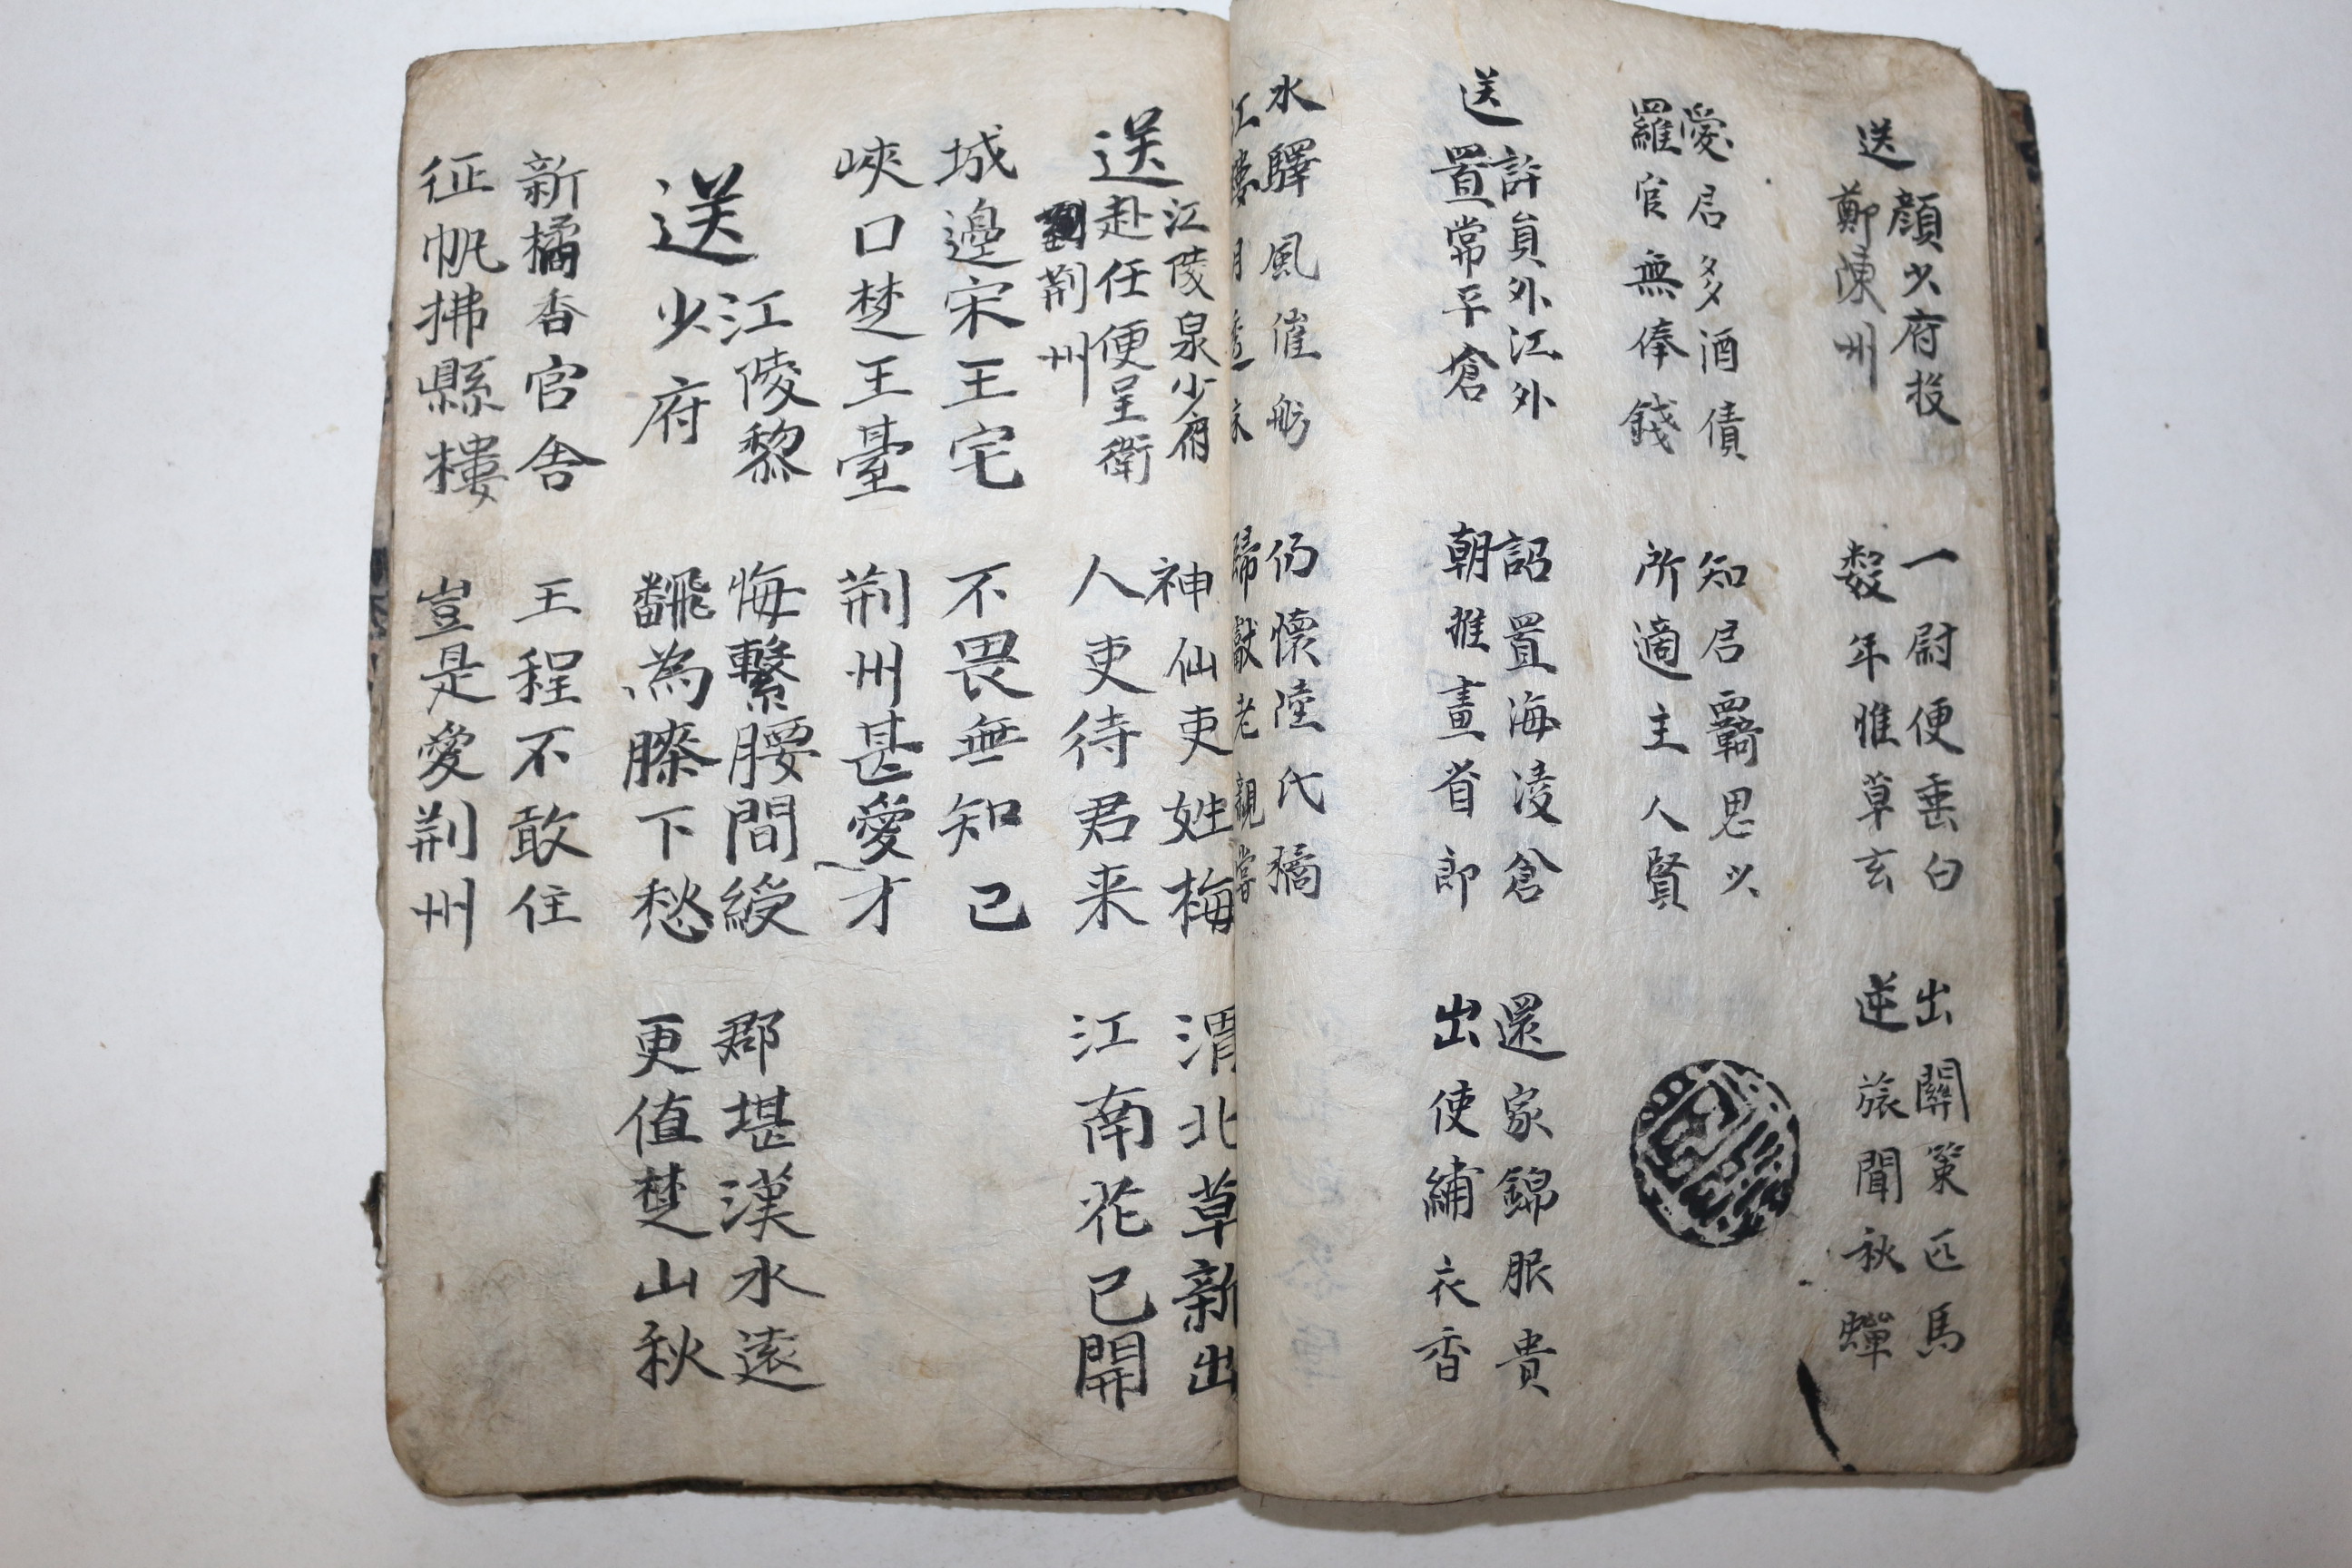 送顔少府投
鄭陳州
一尉便垂白
數年惟草玄
出關策匹馬
逆旅聞秋蟬
愛君多酒債
羅官無俸錢
知君覊思少
所適主人賢
送許員外江外
置常平倉
詔置海凌倉
朝推畫省郎
還家錦服貴
出使繡衣香
水驛風催舫
江樓月透床
仍懷陸氏橘
歸獻老親嘗
送江陵泉少府
赴任便呈衛
荆州
神仙吏姓梅
人吏待君来
渭北草新出
江南花已開
城邊宋王宅
峽口楚王臺
不畏無知已
荆州甚愛才
送江陵黎
少府
悔繫腰間綬
飜為膝下愁
郡堪漢水遠
更值楚山秋
新橘香官舍
征帆拂縣樓
王程不敢住
豈是愛荆州